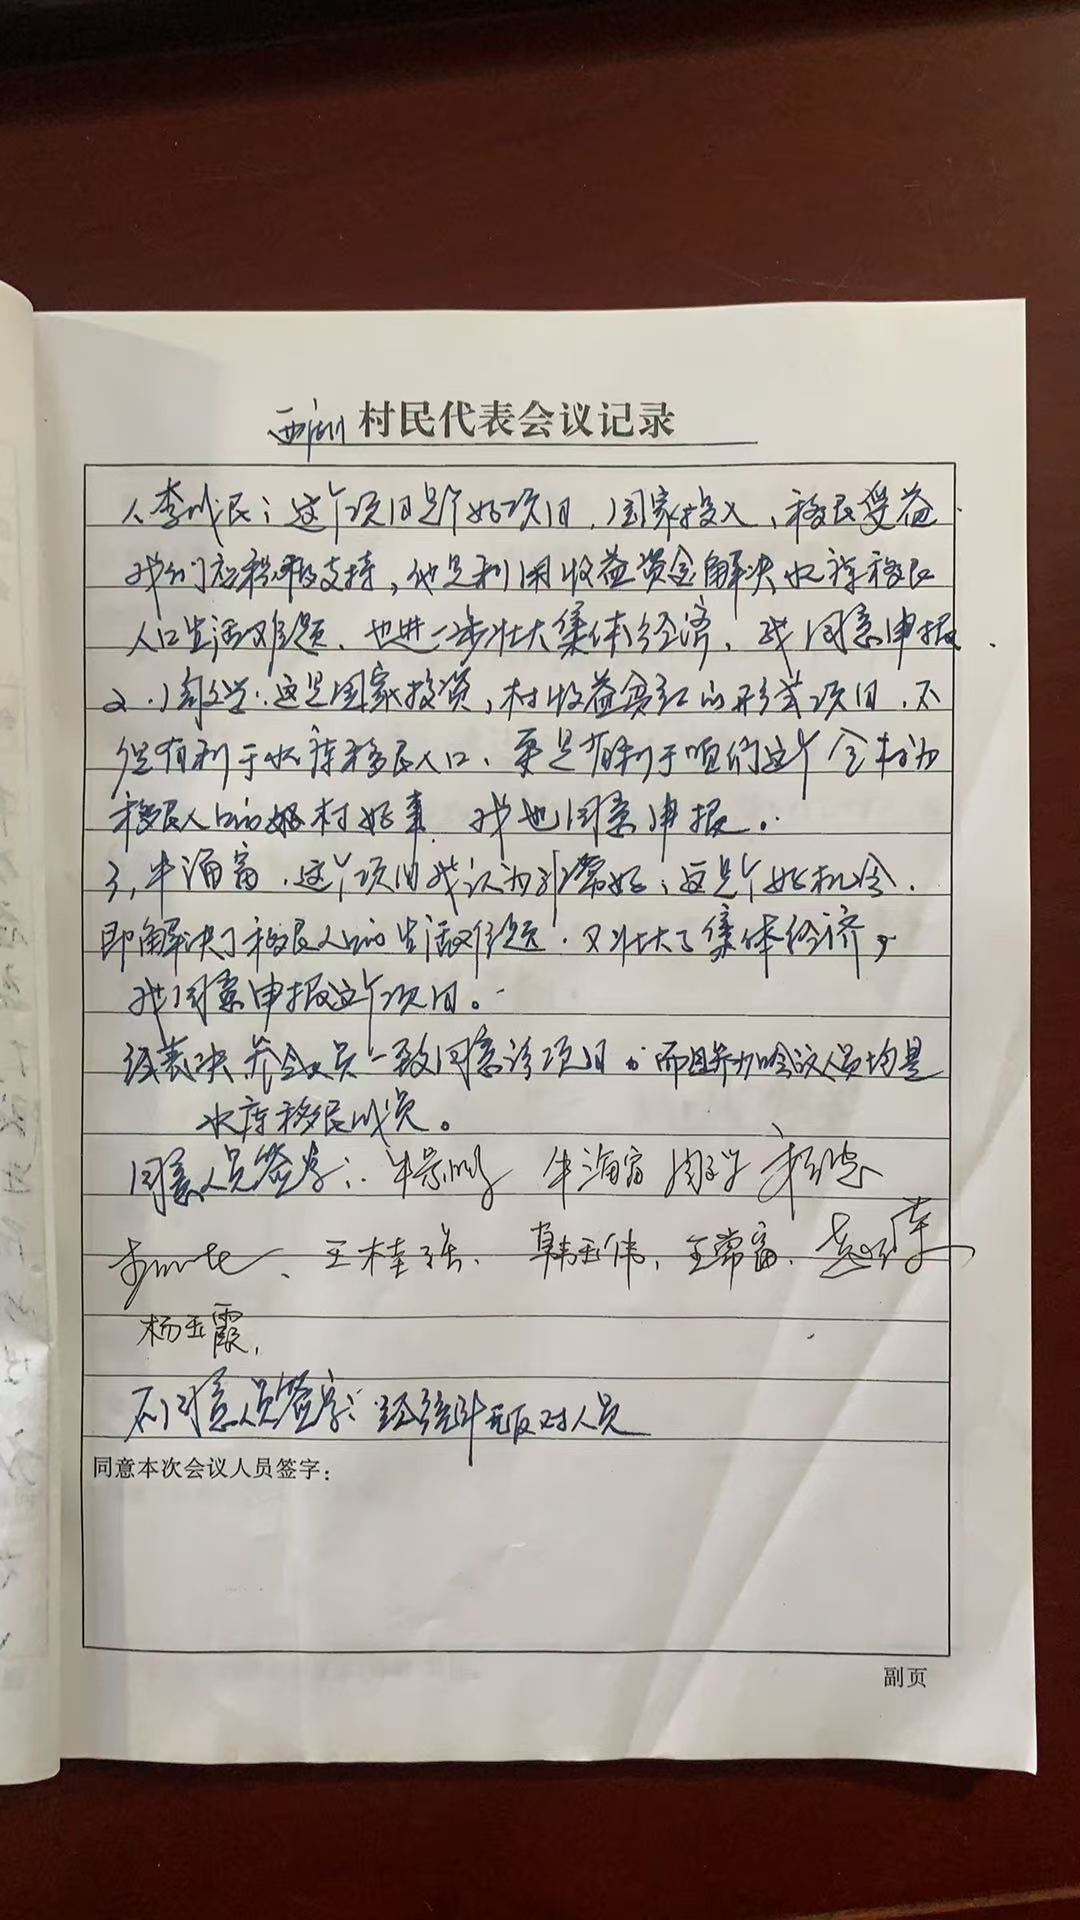 村民代表会议记录
1、李成民：这个项目是个好项目，国家投入，移民受益
我们应积极支持，他是利用收益资金解决水库移民
人口生活难题，也进一步壮大集体经济，我同意申报。
2、周文学：这是国家投资，村收益分红的形式项目，不
但有利于水库移民人口，更是有利于咱们这个全村为
移民人口的好村好事，我也同意申报。
3、牛海富，这个项目我认为非常好，这是个好机会，
即解决了移民人口的生活难题，又壮大了集体经济，
我同意申报这个项目。
经表决 参会人员一致同意该项目。而且参加会议人员均是
水库移民成员。
同意人员签字： 牛海富
王桂强、韩玉伟、王常富、
杨玉霞，
不同意人员签字：经统计无反对人员
同意本次会议人员签字：
副页